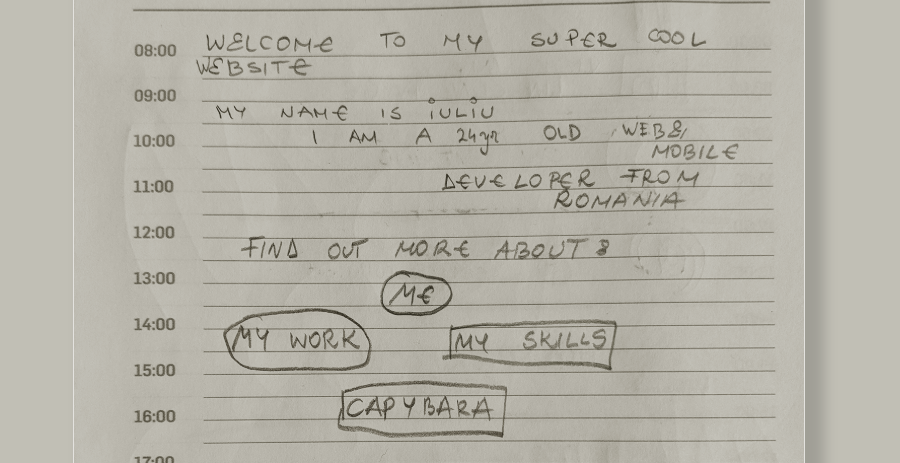 08:00 WELCOME TO MY SUPER COOL
WEBSITE
09:00
MY NAME IS iULiU
10:00 I AM A 24yr OLD WEB&
MOBILE
11:00 DEVELOPER FROM
ROMANIA
12:00
FIND OUT MORE ABOUT :
13:00
ME
14:00
MY WORK MY SKILLS
15:00
CAPYBARA
16:00
17:00